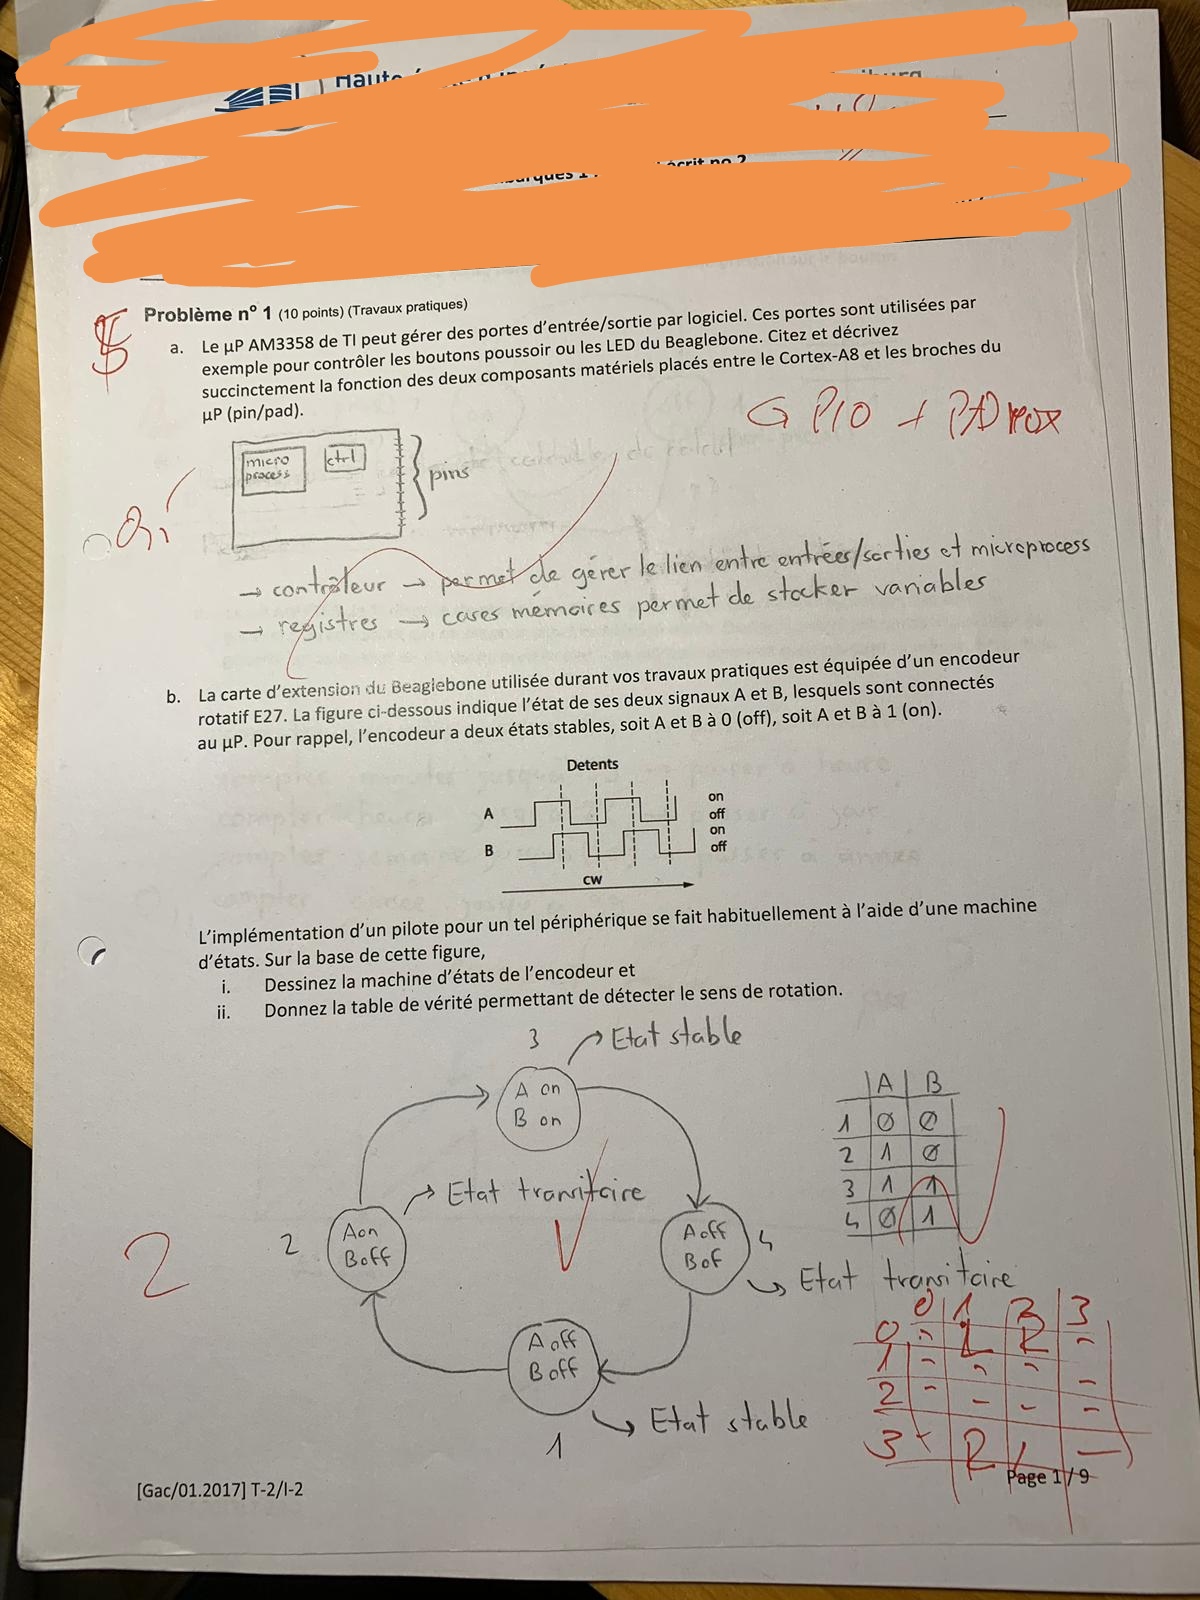 Haute
écrit no 2
Problème n° 1 (10 points) (Travaux pratiques)
5
a. Le µP AM3358 de TI peut gérer des portes d'entrée/sortie par logiciel. Ces portes sont utilisées par
exemple pour contrôler les boutons poussoir ou les LED du Beaglebone. Citez et décrivez
succinctement la fonction des deux composants matériels placés entre le Cortex-A8 et les broches du
µP (pin/pad).
GPIO + PADMOX
micro
process
ctrl
pins
→ contrôleur → permet de gérer le lien entre entrées/sorties et microprocess
→ registres → cases mémoires permet de stocker variables
b. La carte d'extension du Beaglebone utilisée durant vos travaux pratiques est équipée d'un encodeur
rotatif E27. La figure ci-dessous indique l'état de ses deux signaux A et B, lesquels sont connectés
au µP. Pour rappel, l'encodeur a deux états stables, soit A et B à 0 (off), soit A et B à 1 (on).
Detents
A
on
off
B
on
off
CW
L'implémentation d'un pilote pour un tel périphérique se fait habituellement à l'aide d'une machine
d'états. Sur la base de cette figure,
i. Dessinez la machine d'états de l'encodeur et
ii. Donnez la table de vérité permettant de détecter le sens de rotation.
3 → Etat stable
A on
B on
→ Etat transitoire
2
A on
B off
2
A off
B of
4
→ Etat transitoire
A off
B off
→ Etat stable
1
A B
1 0 0
2 1 0
3 1 1
4 0 1
0 1 2 3
0 - L R -
1 - - - -
2 - - - -
3 - R L -
[Gac/01.2017] T-2/I-2
Page 1 / 9